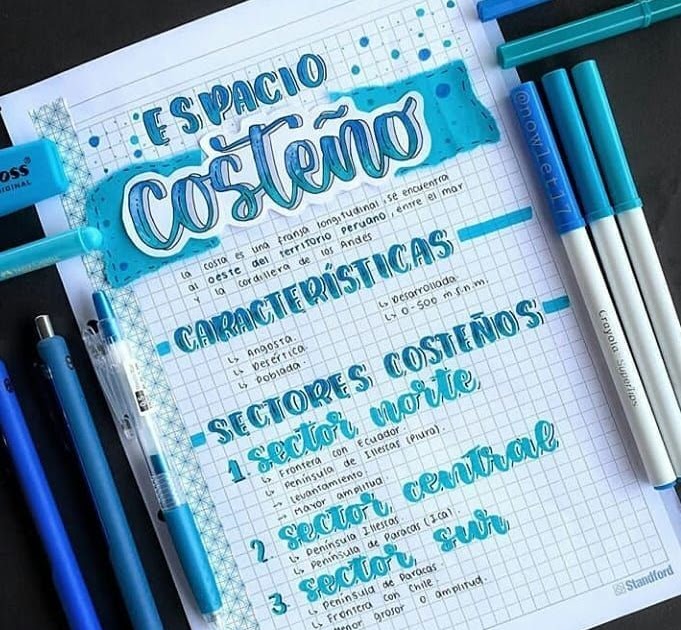 ESPACIO
costeño
La costa es una franja longitudinal, se encuentra
al oeste del territorio Peruano, entre el mar
y la cordillera de los Andes
CARACTERÍSTICAS
↳ Angosta
↳ Desértica
↳ Poblada
↳ Desarrollada
↳ 0-500 m s.n.m.
SECTORES COSTEÑOS
1. sector norte
↳ Frontera con Ecuador
↳ Península de Illescas (Piura).
↳ Levantamiento
↳ Mayor amplitud
2. sector central
↳ Península Illescas
↳ Península de Paracas (Ica).
3. sector sur
↳ Península de Paracas
↳ Frontera con Chile
Menor grosor o amplitud.
Standford
@nowlet17
Crayola SuperTips
OSS
ORIGINAL